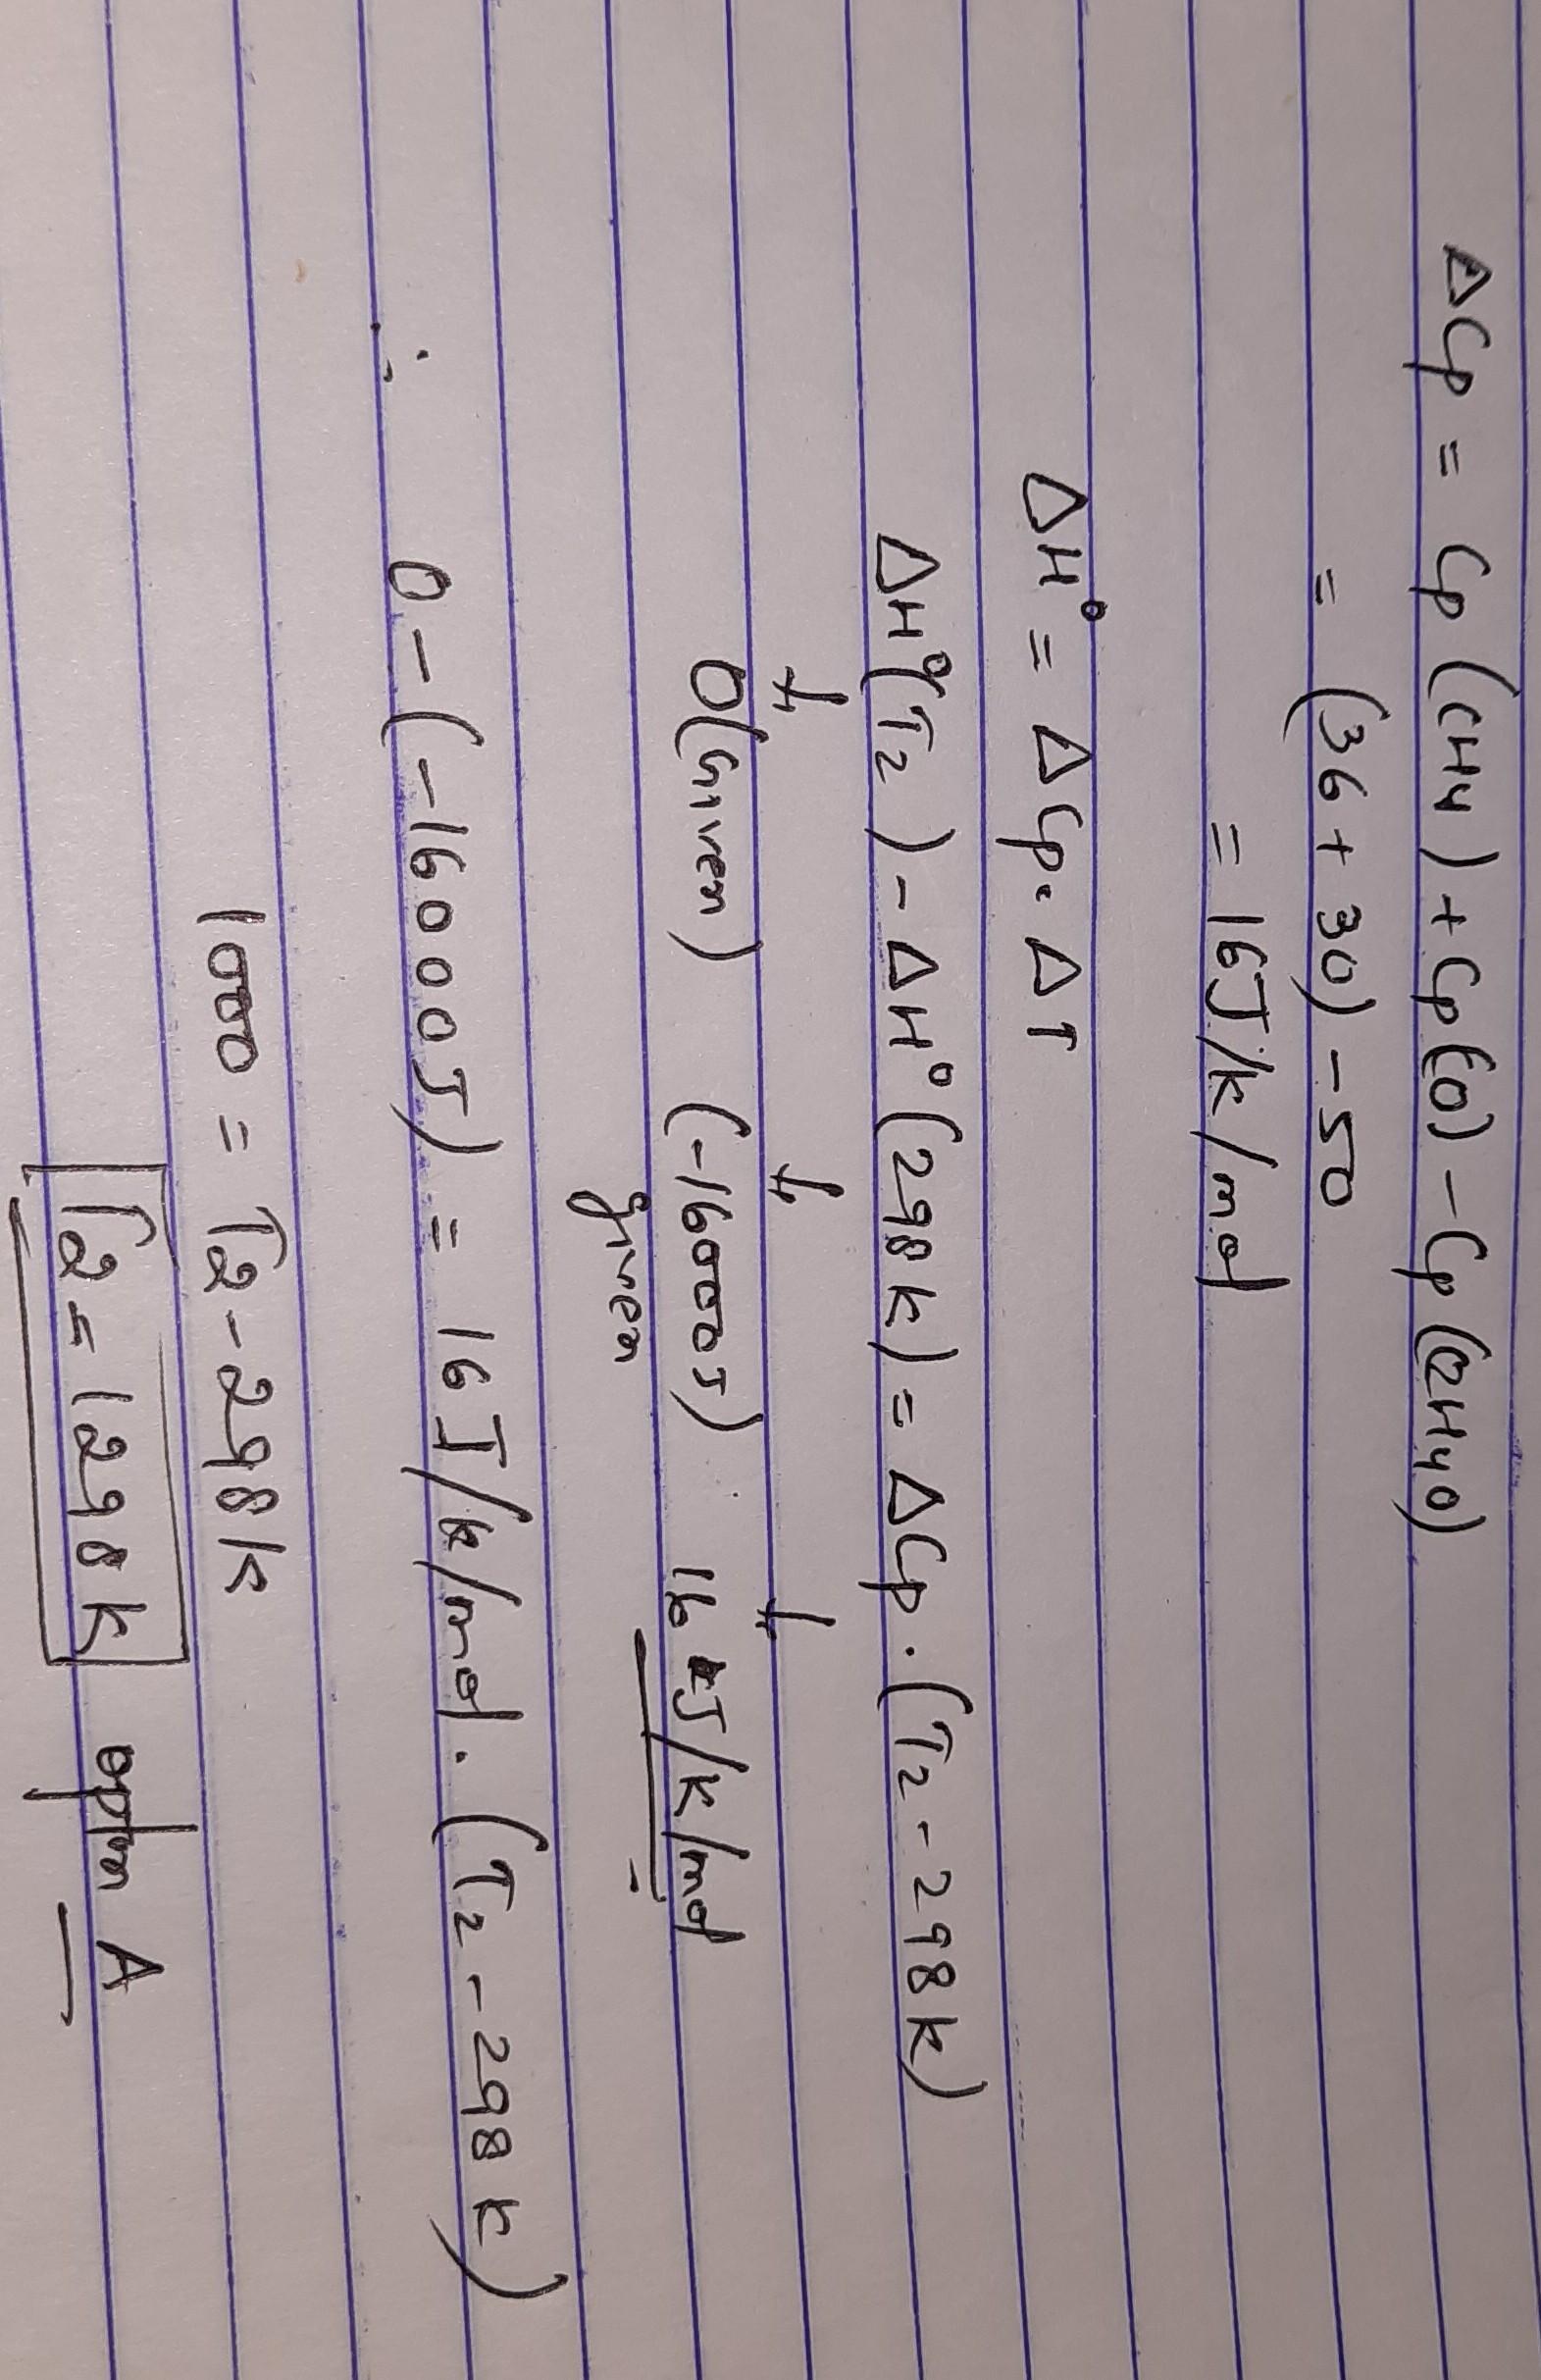 ΔCp = Cp (CH4) + Cp(CO) - Cp (C2H4O)
= (36 + 30) - 50
= 16J/k/mol
ΔH° = ΔCp. ΔT
ΔH°(T2) - ΔH°(298k) = ΔCp. (T2 - 298k)
↓ ↓ ↓
0(Given) (-16000J) 16 J/K/mol
given
∴ 0 - (-16000J) = 16 J/k/mol. (T2 - 298 k)
1000 = T2 - 298k
T2 = 1298k option A